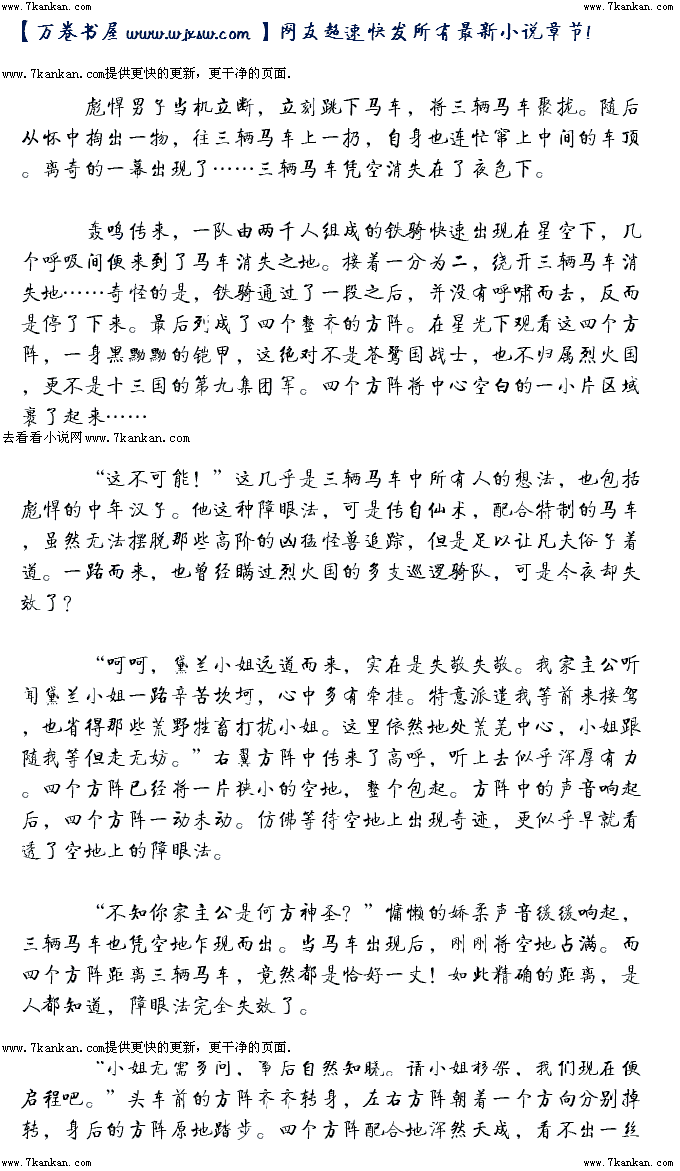 www.7kankan.com www.7kankan.com www.7kankan.com
【万卷书屋www.wjxsw.com】网友超速快发所有最新小说章节!
www.7kankan.com提供更快的更新，更干净的页面.
彪悍男子当机立断，立刻跳下马车，将三辆马车聚拢。随后
从怀中掏出一物，往三辆马车上一扔，自身也连忙窜上中间的车顶
。离奇的一幕出现了……三辆马车凭空消失在了夜色下。
轰鸣传来，一队由两千人组成的铁骑快速出现在星空下，几
个呼吸间便来到了马车消失之地。接着一分为二，绕开三辆马车消
失地……奇怪的是，铁骑通过了一段之后，并没有呼啸而去，反而
是停了下来。最后列成了四个整齐的方阵。在星光下观看这四个方
阵，一身黑黝黝的铠甲，这绝对不是苍鹭国战士，也不归属烈火国
，更不是十三国的第九集团军。四个方阵将中心空白的一小片区域
裹了起来……
去看看小说网www.7kankan.com
“这不可能！”这几乎是三辆马车中所有人的想法，也包括
彪悍的中年汉子。他这种障眼法，可是传自仙术，配合特制的马车
，虽然无法摆脱那些高阶的凶猛怪兽追踪，但是足以让凡夫俗子着
道。一路而来，也曾经瞒过烈火国的多支巡逻骑队，可是今夜却失
效了？
“呵呵，黛兰小姐远道而来，实在是失敬失敬。我家主公听
闻黛兰小姐一路辛苦坎坷，心中多有牵挂。特意派遣我等前来接驾
，也省得那些荒野牲畜打扰小姐。这里依然地处荒芜中心，小姐跟
随我等但走无妨。”右翼方阵中传来了高呼，听上去似乎浑厚有力
。四个方阵已经将一片狭小的空地，整个包起。方阵中的声音响起
后，四个方阵一动未动。仿佛等待空地上出现奇迹，更似乎早就看
透了空地上的障眼法。
“不知你家主公是何方神圣？”慵懒的娇柔声音缓缓响起，
三辆马车也凭空地乍现而出。当马车出现后，刚刚将空地占满。而
四个方阵距离三辆马车，竟然都是恰好一丈！如此精确的距离，是
人都知道，障眼法完全失效了。
www.7kankan.com提供更快的更新，更干净的页面.
“小姐无需多问，事后自然知晓。请小姐移架，我们现在便
启程吧。”头车前的方阵齐齐转身，左右方阵朝着一个方向分别掉
转，身后的方阵原地踏步。四个方阵配合地浑然天成，看不出一丝
www.7kankan.com www.7kankan.com www.7kankan.com